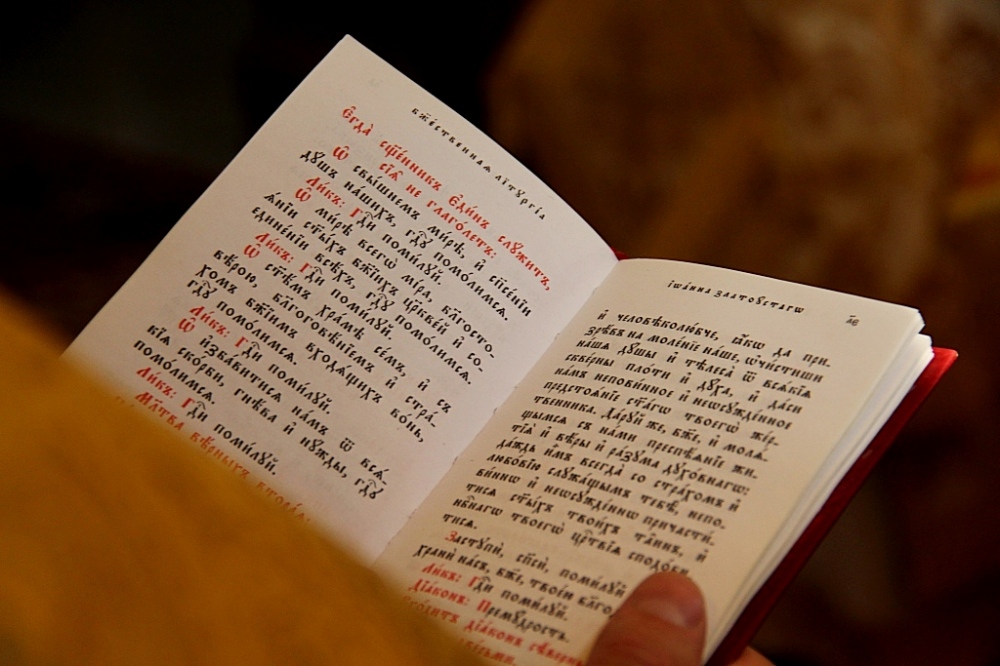 Бж҃е́ственнаѧ лїтꙋргі́а
Є҆гда̀ сщ҃е́нникъ є҆ди́нъ слꙋ́житъ,
сїѧ̑ не глаго́летъ:
Ѡ҆ свы́шнемъ ми́рѣ, и҆ спⷭ҇е́нїи
дꙋ́шъ на́шихъ, гдⷭ҇ꙋ помо́лимсѧ.
Ли́къ: Гдⷭ҇и поми́лꙋй.
Ѡ҆ ми́рѣ всегѡ̀ мі́ра, бл҃госто-
ѧ́нїи ст҃ы́хъ бж҃їихъ цр҃кве́й и҆ со-
едине́нїи всѣ́хъ, гдⷭ҇ꙋ помо́лимсѧ.
Ли́къ: Гдⷭ҇и поми́лꙋй.
Ѡ҆ ст҃ѣ́мъ хра́мѣ се́мъ, и҆ съ
вѣ́рою, бл҃гоговѣ́нїемъ и҆ стра́-
хомъ бж҃їимъ входѧ́щихъ во́нь,
гдⷭ҇ꙋ помо́лимсѧ.
Ли́къ: Гдⷭ҇и поми́лꙋй.
Ѡ҆ и҆зба́витисѧ на́мъ ѿ всѧ́-
кїѧ ско́рби, гнѣ́ва и҆ нꙋ́жды, гдⷭ҇ꙋ
помо́лимсѧ.
Ли́къ: Гдⷭ҇и поми́лꙋй.
Мл҃тва вѣ́рныхъ втора́ѧ:
І҆ѡа́нна златоꙋ́стагѡ
и҆ человѣколю́бче, ꙗ҆́кѡ да при-
зрѣ́въ на моле́нїе на́ше, ѡ҆чи́стиши
на́шѧ дꙋ́шы и҆ тѣлеса̀ ѿ всѧ́кїѧ
скве́рны пло́ти и҆ дꙋ́ха, и҆ да́си
на́мъ непови́нное и҆ неѡсꙋжде́нное
предстоѧ́нїе ст҃а́гѡ твоегѡ̀ же́р-
твенника. Да́рꙋй же, бж҃е, и҆ молѧ́-
щымсѧ съ на́ми преспѣѧ́нїе жи-
тїѧ̀ и҆ вѣ́ры и҆ ра́зꙋма дꙋхо́внагѡ:
да́ждь и҆̀мъ всегда̀ со стра́хомъ и҆
любо́вїю слꙋжа́щымъ тебѣ̀, непо-
ви́ннѡ и҆ неѡсꙋжде́ннѡ причасти́-
тисѧ ст҃ы́хъ твои́хъ та̑инъ, и҆
нбⷭ҇нагѡ твоегѡ̀ црⷭ҇твїѧ сподо́би-
тисѧ.
Застꙋпѝ, сп҃сѝ, поми́лꙋй
хранѝ на́съ, бж҃е, твое́ю
Ли́къ: Гдⷭ҇и поми́лꙋй.
Дїа́конъ: Премꙋ́дрость.
дїа́конъ